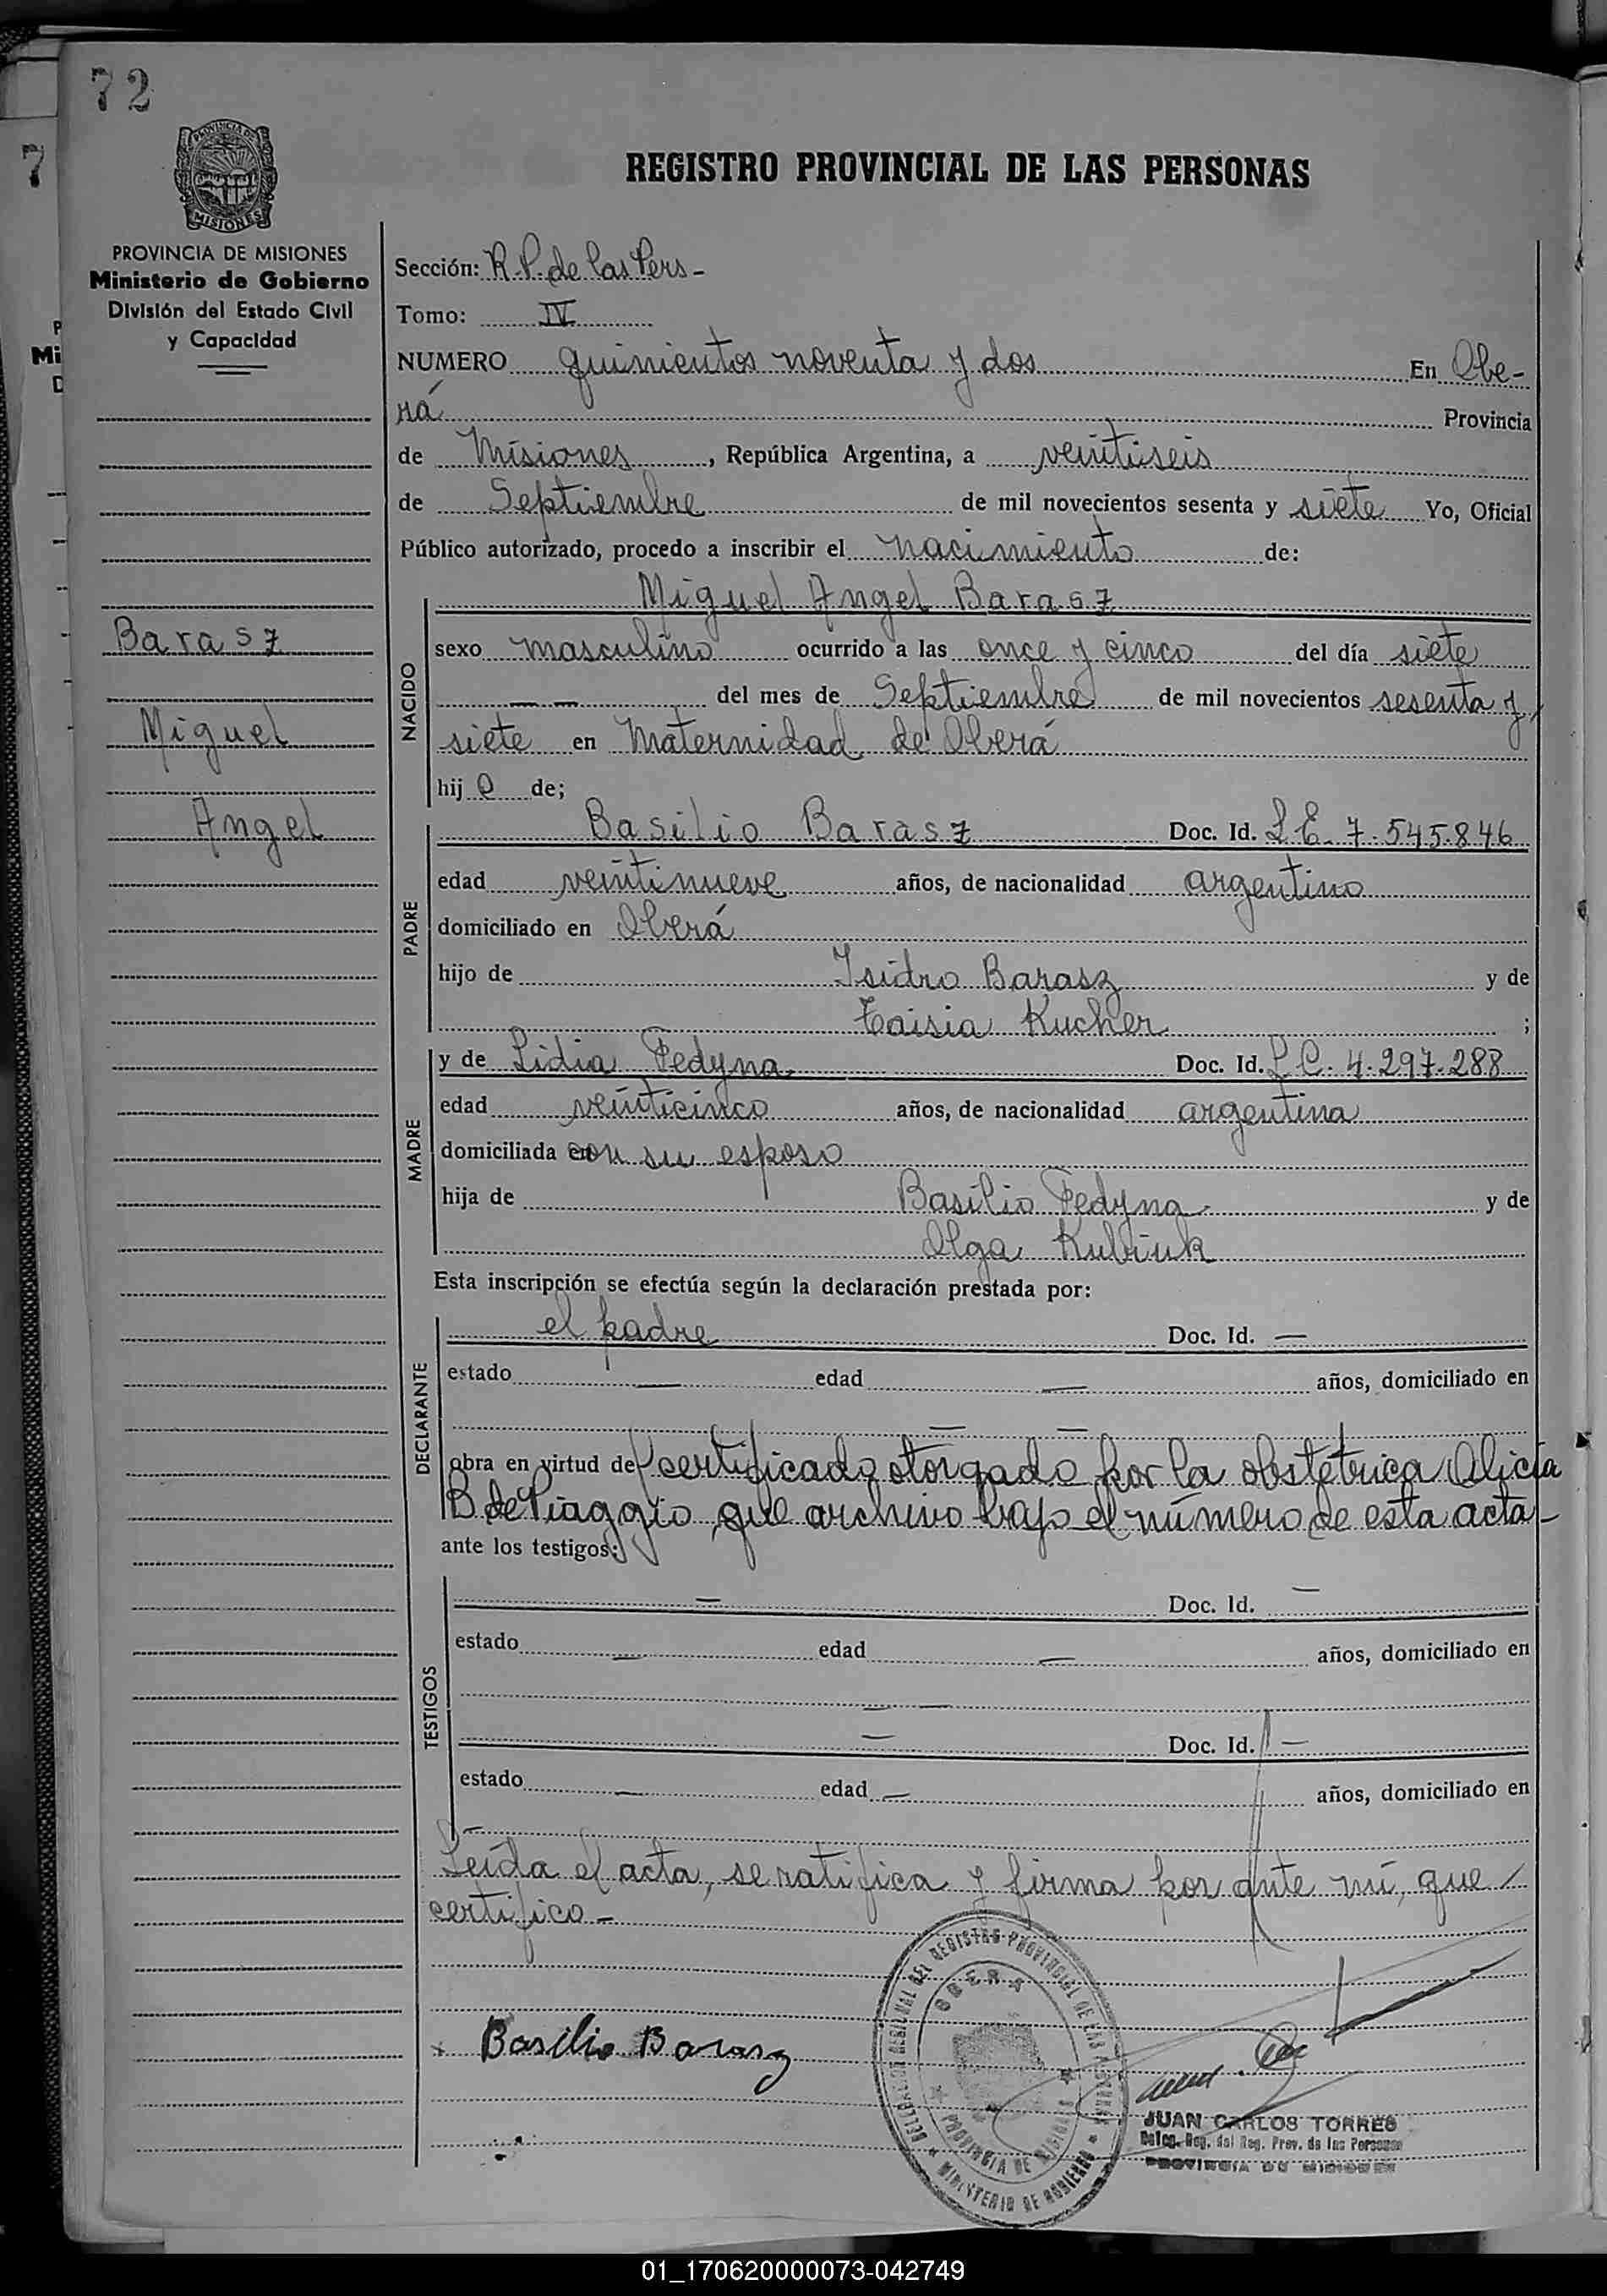 72
7
REGISTRO PROVINCIAL DE LAS PERSONAS
PROVINCIA DE
MISIONES
PROVINCIA DE MISIONES
Ministerio de Gobierno
División del Estado Civil
y Capacidad
Barasz
Miguel
Angel
Sección: R.P. de las Pers-
Tomo: IV
NUMERO quinientos noventa y dos En Obe-
rá Provincia
de Misiones, República Argentina, a veintiseis
de Septiembre de mil novecientos sesenta y siete Yo, Oficial
Público autorizado, procedo a inscribir el nacimiento de:
NACIDO
Miguel Angel Barasz
sexo masculino ocurrido a las once y cinco del día siete
— — del mes de Septiembre de mil novecientos sesenta y
siete en Maternidad de Oberá
hijo de;
PADRE
Basilio Barasz Doc. Id. L.E. 7.545.846
edad veintinueve años, de nacionalidad argentino
domiciliado en Oberá
hijo de Isidro Barasz y de
Taisia Kucher ;
MADRE
y de Lidia Fedyna Doc. Id. L.C. 4.297.288
edad veinticinco años, de nacionalidad argentina
domiciliada con su esposo
hija de Basilio Fedyna y de
Olga Kubiuk
Esta inscripción se efectúa según la declaración prestada por:
DECLARANTE
el padre Doc. Id. —
estado — edad — años, domiciliado en
— —
obra en virtud de certificado otorgado por la obstetrica Alicia
B. de Piaggio, que archivo bajo el número de esta acta-
ante los testigos:
TESTIGOS
— Doc. Id. —
estado — edad — años, domiciliado en
— —
— Doc. Id. —
estado — edad — años, domiciliado en
—
Leída el acta, se ratifica y firma por ante mí, que
certifico-
Basilio Barasz
DELEGACION REGIONAL DEL REGISTRO PROVINCIAL DE LAS PERSONAS
OBERA
PROVINCIA DE MISIONES
MINISTERIO DE GOBIERNO
JUAN CARLOS TORRES
Deleg. Reg. del Reg. Prov. de las Personas
PROVINCIA DE MISIONES
01_170620000073-042749